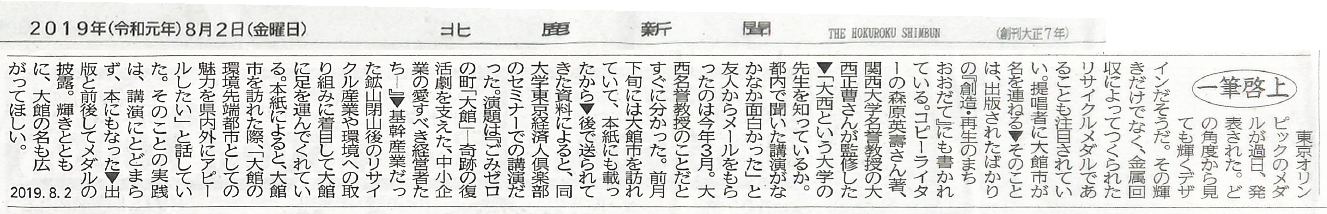 2019年(令和元年)8月2日(金曜日)
北鹿新聞
THE HOKUROKU SHIMBUN
(創刊大正7年)
一筆啓上
東京オリン
ピックのメダ
ルが過日、発
表された。ど
の角度から見
ても輝くデザ
インだそうだ。その輝
きだけでなく、金属回
収によってつくられた
リサイクルメダルであ
ることも注目されてい
い。提唱者に大館市が
名を連ねる▼そのこと
は、出版されたばかり
の『創造・再生のまち
おおだて』にも書かれ
ている。コピーライタ
ーの森原英壽さん著、
関西大学名誉教授の大
西正曹さんが監修した
▼「大西という大学の
先生を知っているか。
都内で聞いた講演がな
かなか面白かった」と
友人からメールをもら
ったのは今年3月。大
西名誉教授のことだと
すぐに分かった。前月
下旬には大館市を訪れ
ていて、本紙にも載っ
たから▼後で送られて
きた資料によると、同
大学東京経済人倶楽部
のセミナーでの講演だ
った。演題は「ごみゼロ
の町『大館』―奇跡の復
活劇を支えた、中小企
業の愛すべき経営者た
ち―」▼基幹産業だっ
た鉱山閉山後のリサイ
クル産業や環境への取
り組みに着目して大館
に足を運んでくれてい
る。本紙によると、大館
市を訪れた際、「大館の
環境先端都市としての
魅力を県内外にアピー
ルしたい」と話してい
た。そのことの実践
は、講演にとどまら
ず、本にもなった▼出
版と前後してメダルの
披露。輝きととも
に、大館の名も広
がってほしい。
2019.8.2